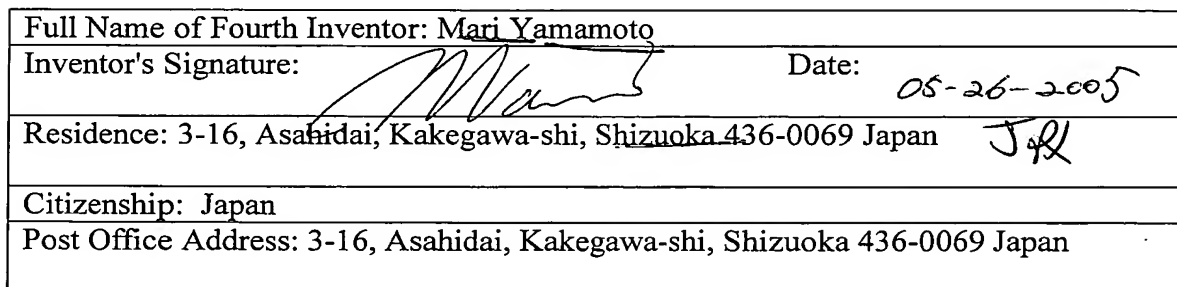 Full Name of Fourth Inventor: Mari Yamamoto
Inventor's Signature: Date: 05-26-2005
Residence: 3-16, Asahidai, Kakegawa-shi, Shizuoka 436-0069 Japan
Citizenship: Japan
Post Office Address: 3-16, Asahidai, Kakegawa-shi, Shizuoka 436-0069 Japan